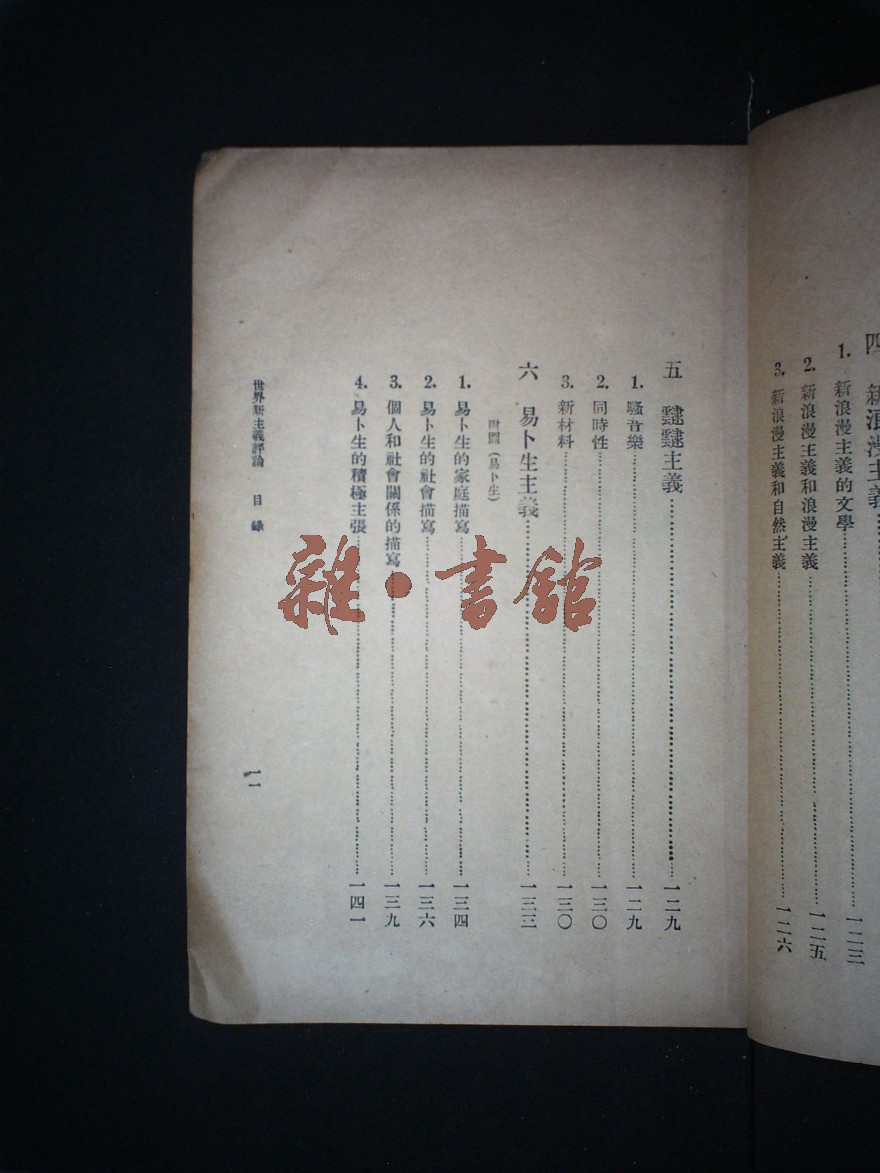 四 新浪漫主義
1. 新浪漫主義的文學……一二三
2. 新浪漫主義和浪漫主義……一二五
3. 新浪漫主義和自然主義……一二六
五 靆靆主義……一二九
1. 騷音樂……一二九
2. 同時性……一三〇
3. 新材料……一三〇
六 易卜生主義……一三三
附圖（易卜生）
1. 易卜生的家庭描寫……一三四
2. 易卜生的社會描寫……一三六
3. 個人和社會關係的描寫……一三九
4. 易卜生的積極主張……一四一
世界新主義評論 目錄
一一
雜·書館